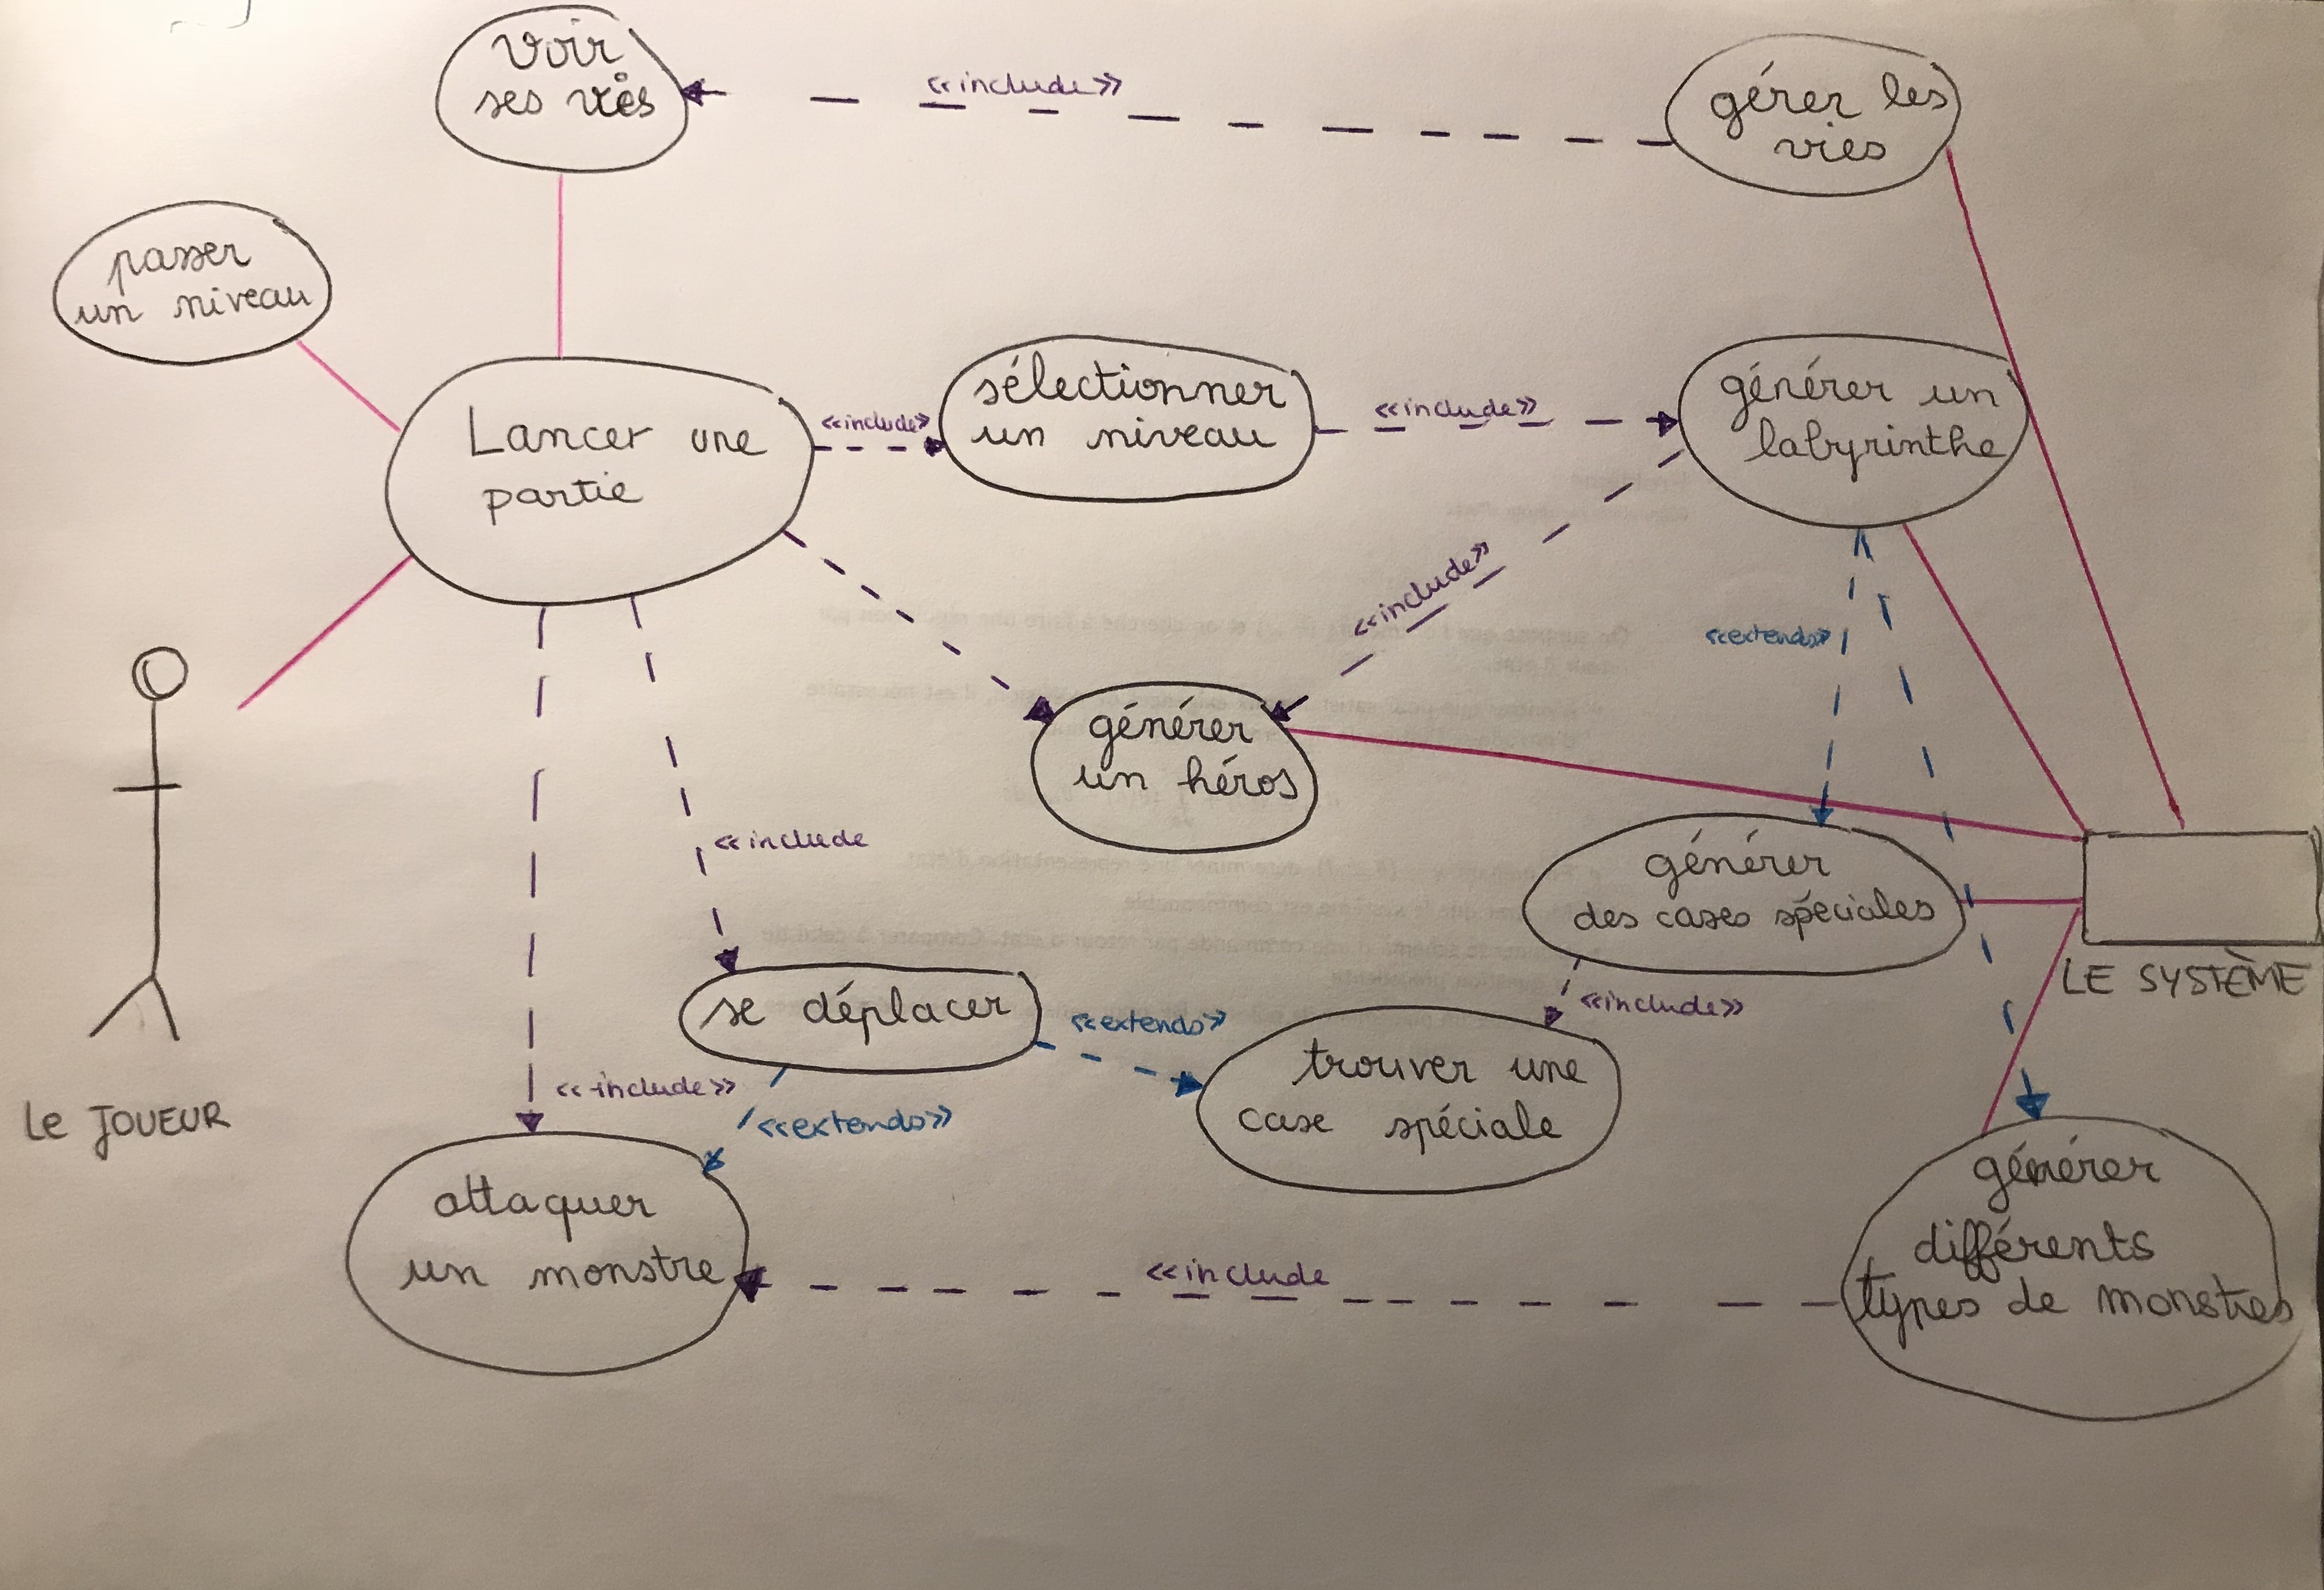 voir
ses vies
«include»
gérer les
vies
passer
un niveau
Lancer une
partie
«include»
sélectionner
un niveau
«include»
générer un
labyrinthe
«include»
«extends»
générer
un héros
«include
générer
des cases spéciales
LE SYSTÈME
se déplacer
«extends»
«include»
trouver une
case spéciale
Le JOUEUR
«include»
«extends»
attaquer
un monstre
«include
générer
différents
types de monstres